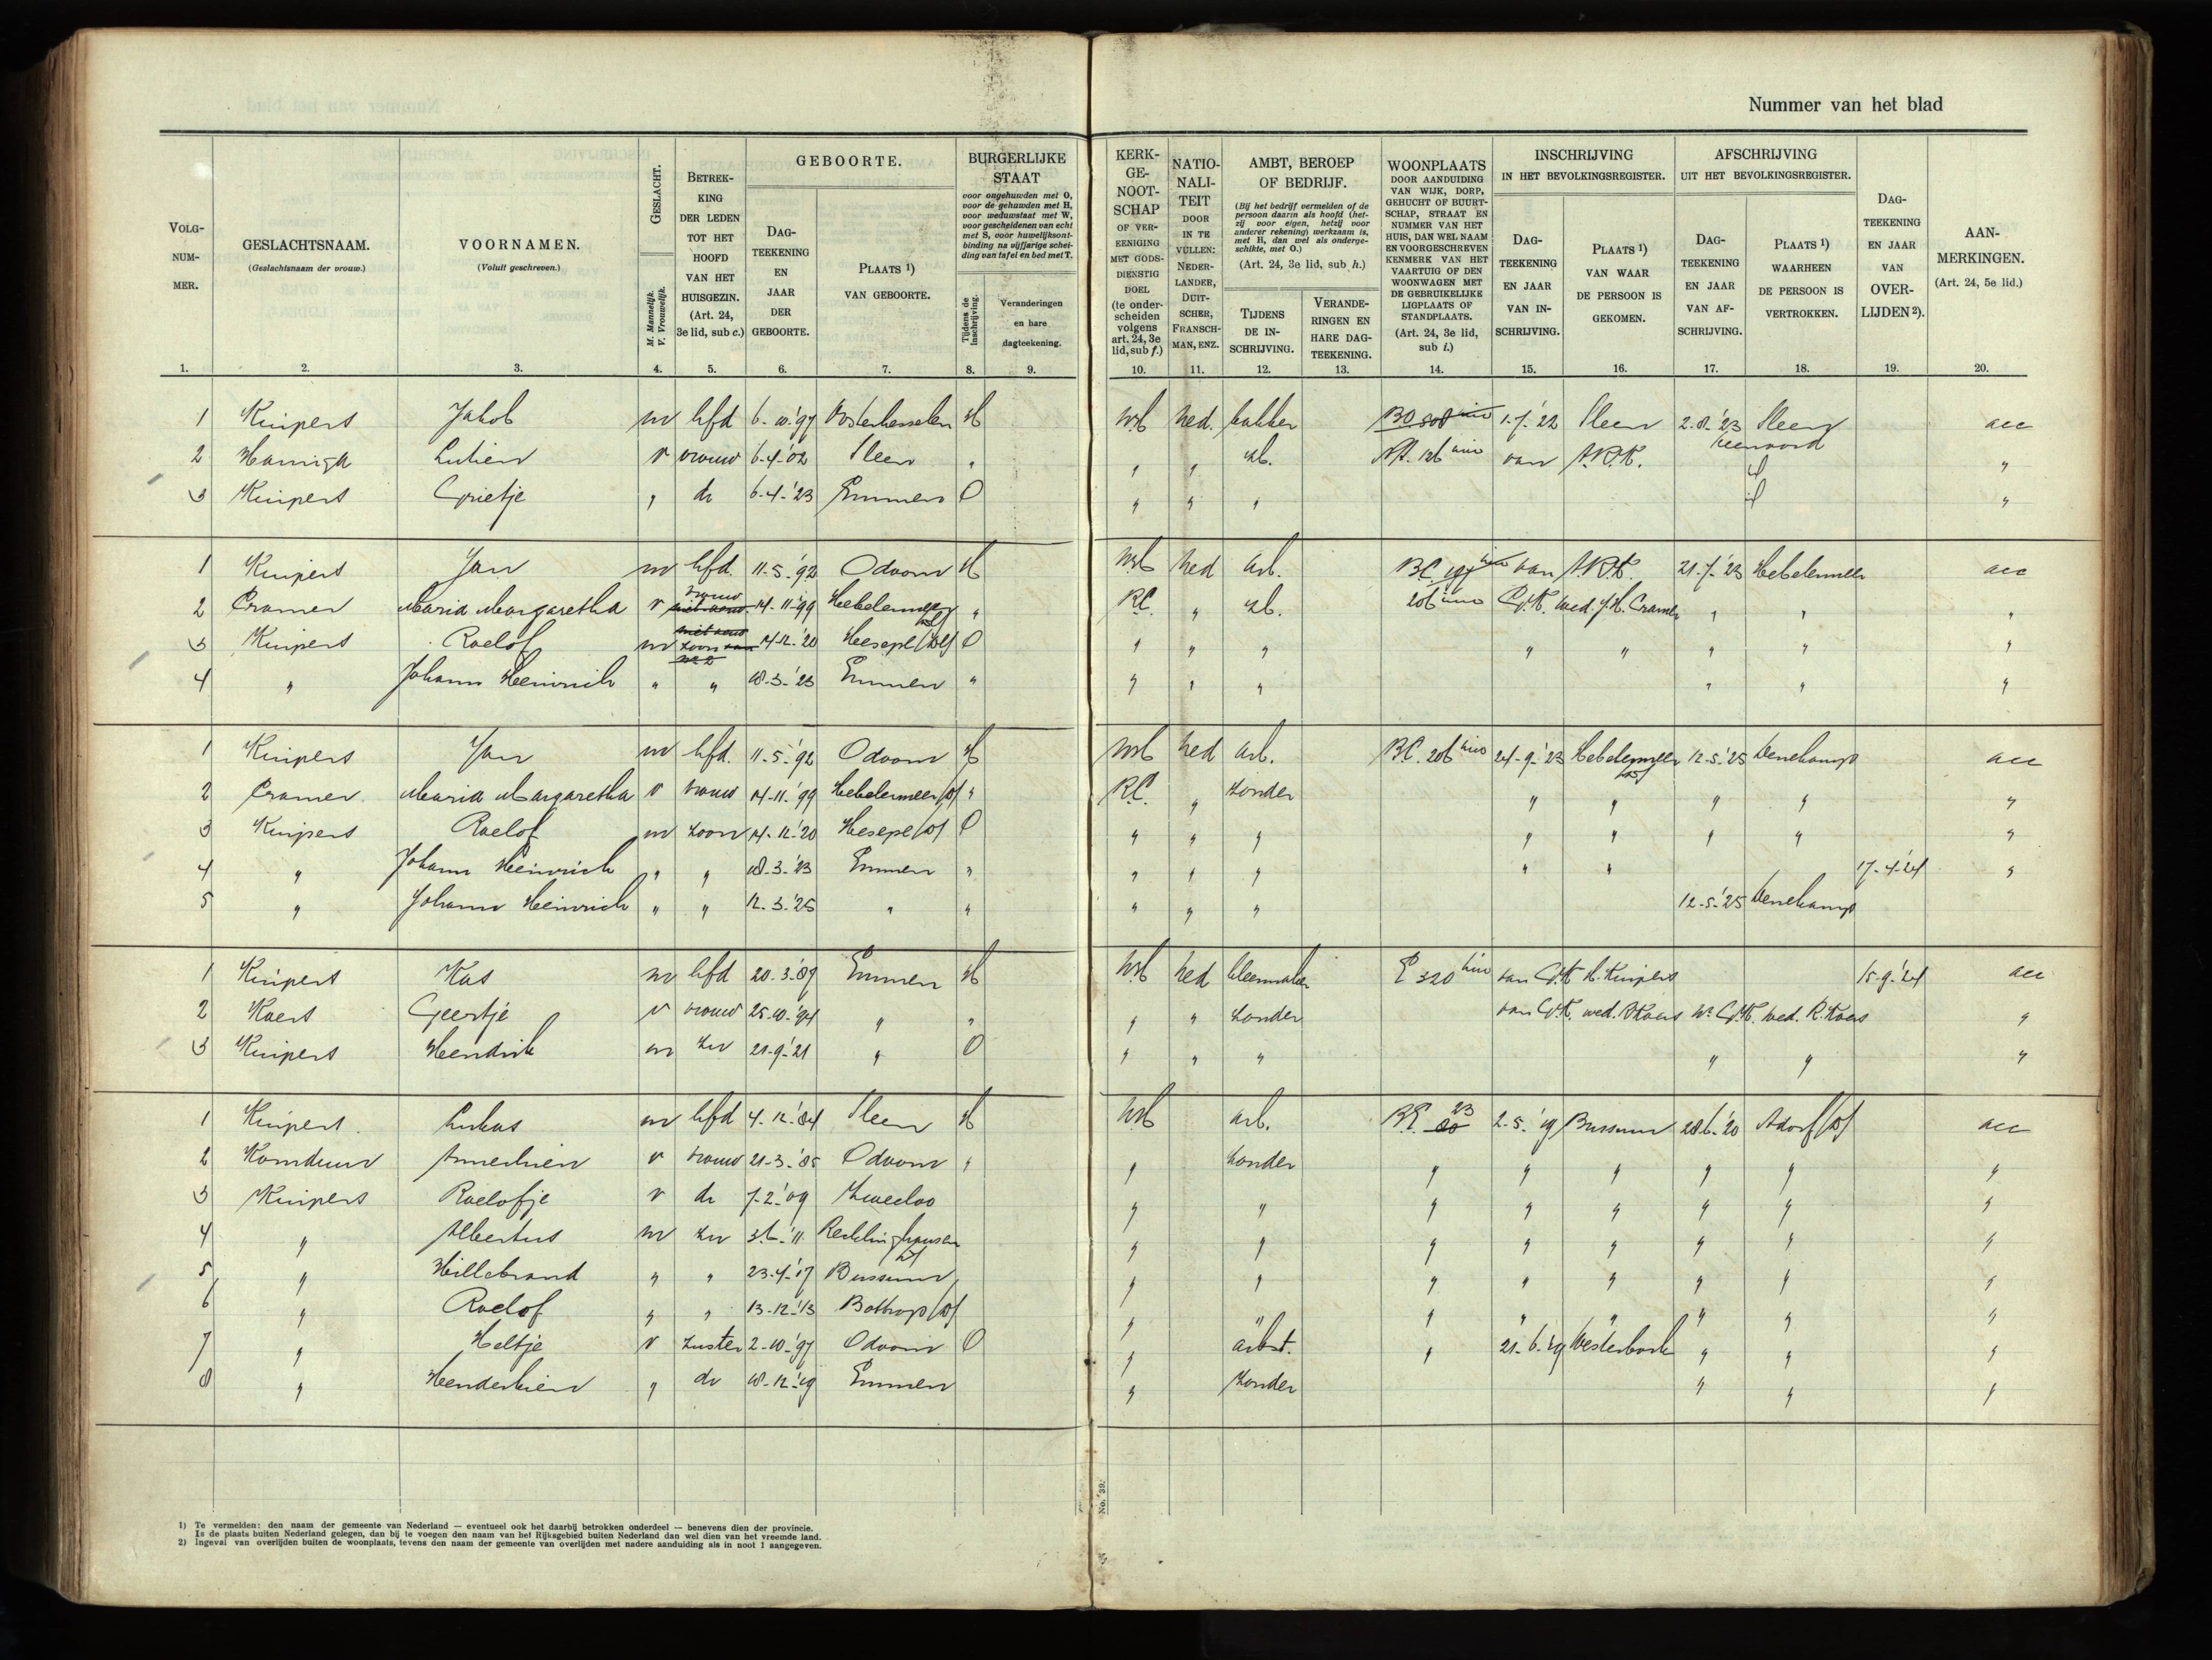 Nummer van het blad
VOLG-NUM-MER.
GESLACHTSNAAM.
(Geslachtsnaam der vrouw.)
VOORNAMEN.
(Voluit geschreven.)
GESLACHT.
M. Mannelijk.
V. Vrouwelijk.
BETREK-KING DER LEDEN TOT HET HOOFD VAN HET HUISGEZIN.
(Art. 24, 3e lid, sub c.)
GEBOORTE.
DAG-TEEKENING EN JAAR DER GEBOORTE.
PLAATS 1) VAN GEBOORTE.
BURGERLIJKE STAAT
voor ongehuwden met O, voor de gehuwden met H, voor weduwstaat met W, voor gescheidenen van echt met S, voor huwelijksont-binding na vijfjarige schei-ding van tafel en bed met T.
Tijdens de inschrijving.
Veranderingen en hare dagteekening.
KERK-GE-NOOT-SCHAP OF VER-EENIGING MET GODS-DIENSTIG DOEL (te onder-scheiden volgens art. 24, 3e lid, sub f.)
NATIO-NALI-TEIT DOOR IN TE VULLEN: NEDER-LANDER, DUIT-SCHER, FRANSCH-MAN, ENZ.
AMBT, BEROEP OF BEDRIJF.
(Bij het bedrijf vermelden of de persoon daarin als hoofd (het-zij voor eigen, hetzij voor anderer rekening) werkzaam is, met H, dan wel als onderge-schikte, met O.)
(Art. 24, 3e lid, sub h.)
TIJDENS DE IN-SCHRIJVING.
VERANDE-RINGEN EN HARE DAG-TEEKENING.
WOONPLAATS DOOR AANDUIDING VAN WIJK, DORP, GEHUCHT OF BUURT-SCHAP, STRAAT EN NUMMER VAN HET HUIS, DAN WEL NAAM EN VOORGESCHREVEN KENMERK VAN HET VAARTUIG OF DEN WOONWAGEN MET DE GEBRUIKELIJKE LIGPLAATS OF STANDPLAATS.
(Art. 24, 3e lid, sub i.)
INSCHRIJVING IN HET BEVOLKINGSREGISTER.
DAG-TEEKENING EN JAAR VAN IN-SCHRIJVING.
PLAATS 1) VAN WAAR DE PERSOON IS GEKOMEN.
AFSCHRIJVING UIT HET BEVOLKINGSREGISTER.
DAG-TEEKENING EN JAAR VAN AF-SCHRIJVING.
PLAATS 1) WAARHEEN DE PERSOON IS VERTROKKEN.
DAG-TEEKENING EN JAAR VAN OVER-LIJDEN 2).
AAN-MERKINGEN.
(Art. 24, 5e lid.)
1. 2. 3. 4. 5. 6. 7. 8. 9. 10. 11. 12. 13. 14. 15. 16. 17. 18. 19. 20.
1 Kuipers Jakob m hfd 6-10-'97 Oosterhesselen H NH ned. bakker 1-7-'22 Sleen 2-8-'23 Sleen acc
2 Lubien v vrouw 6-4-'02 Sleen " " " zb. van A.P.K. "
3 Kuipers Grietje " dr 6-4-'23 Emmen O " " " "
1 Kuipers Jan m hfd. 11-5-'92 Odoorn H NH ned arb. van A.P.K. 21-7-'23 Hebelermeer acc
2 Cramer Maria Margaretha v vrouw 14-11-'99 Hebelermeer " R.C. " zb. 206 G.K. wed. J.H. Cramer " " "
3 Kuipers Roelof m zoon 14-12-'20 Heesepe (D) O " " " " " " " "
4 " Johann Heinrich " " 18-3-'23 Emmen " " " " " " "
1 Kuipers Jan m hfd. 11-5-'92 Odoorn H NH ned arb. B.C. 206 24-9-'23 Hebelermeer (D) 12-5-'25 Denekamp acc
2 Cramer Maria Margaretha v vrouw 14-11-'99 Hebelermeer (D) " R.C. " zonder " " " " "
3 Kuipers Roelof m zoon 14-12-'20 Hesepe (D) O " " " " " " " "
4 " Johann Heinrich " " 18-3-'23 Emmen " " " " " " 17-4-'24 "
5 " Johann Heinrich " " 12-3-'25 " " " " " 12-5-'25 Denekamp
1 Kuipers Kas m hfd 20-3-'89 Emmen H NH ned E 320 van G.K. H. Kuipers 15-9-'24 acc
2 Koers Geertje v vrouw 25-10-'94 " " " " zonder van G.K. wed. R Koers nr G.K. wed. R. Koers "
3 Kuipers Hendrik m zn 21-9-'21 " O " " " " " "
1 Kuipers Lukas m hfd 4-12-'84 Sleen H NH arb. B.E. 23 2-5-'19 Bussum 28-6-'20 Adorf (D) acc
2 Komduur Annechien v vrouw 21-3-'85 Odoorn " " zonder " " " " " "
3 Kuipers Roelofje v dr 7-2-'09 Zweeloo " " " " " " " "
4 " Albertus m zn 3-6-'11 Recklinghausen (D) " " " " " " " "
5 " Hillebrand " " 23-4-'17 Bussum " " " " " " " "
6 " Roelof " " 13-12-'13 Bottrop (D) " " " " " " " "
7 " Heltje v zuster 2-10-'97 Odoorn O " arbst. " 21-6-'19 Westerbork " " "
8 " Henderkien " dr 18-12-'19 Emmen " zonder " " "
1) Te vermelden: den naam der gemeente van Nederland — eventueel ook het daarbij betrokken onderdeel — benevens dien der provincie.
Is de plaats buiten Nederland gelegen, dan bij te voegen den naam van het Rijksgebied buiten Nederland dan wel dien van het vreemde land.
2) Ingeval van overlijden buiten de woonplaats, tevens den naam der gemeente van overlijden met nadere aanduiding als in noot 1 aangegeven.
No. '39.